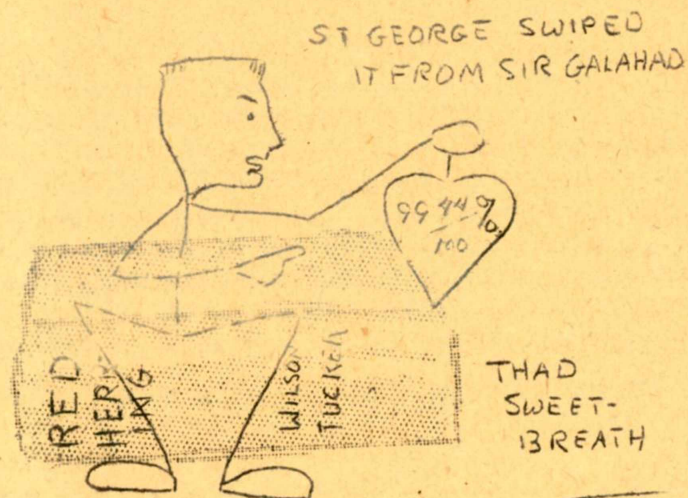 ST GEORGE SWIPED
IT FROM SIR GALAHAD
99 44/100 %
RED
HERRING
WILSON
TUCKER
THAD
SWEET-
BREATH